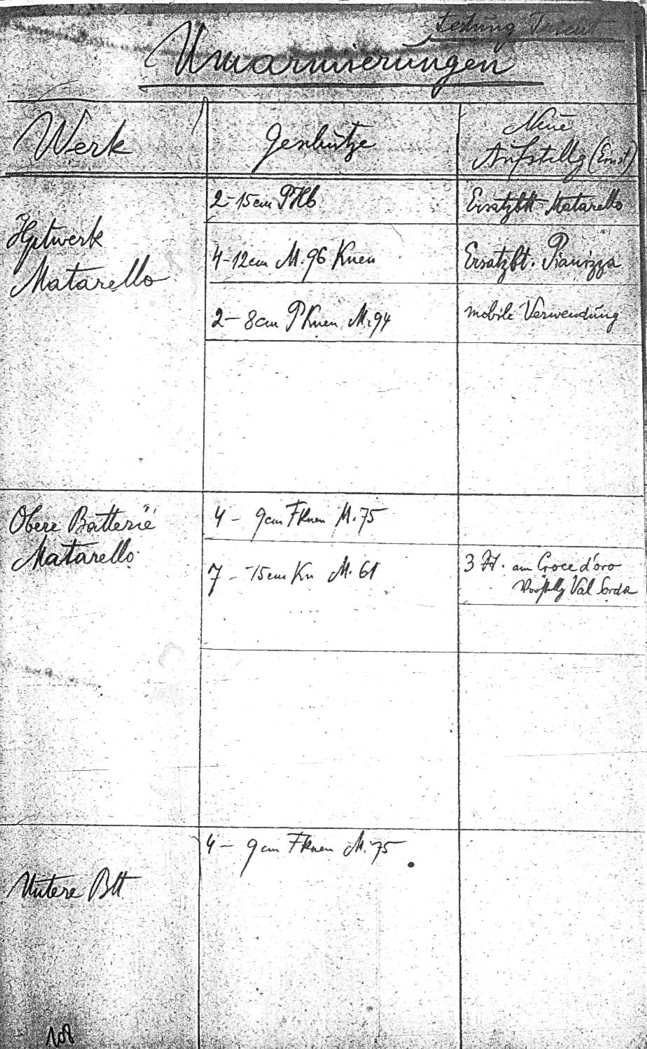 Festung Trient
Umarmierungen
Werk
Geschütze
Neue
Aufstellg (Ernst)
Hptwerk
Matarello
2-15cm PHb
Ersatzbtt. Matarello
4-12cm M.96 Knen
Ersatzbt.
2-8cm PKnen M.94
mobile Verwendung
Obere Batterie
Matarello
4 - 9cm FKnen M.75
7 - 15cm Kn M.61
3 St. am Croce d'oro
Val Sorda
Untere Btt
4 - 9cm FKnen M.75
108